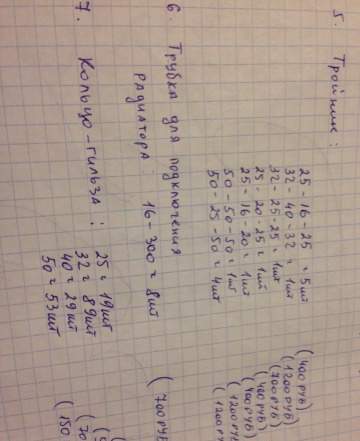 5. Тройник:
25 - 16 - 25 = 5шт (400 РУБ)
32 - 40 - 32 = 1шт (1200 РУБ)
32 - 25 - 25 = 1шт (700 РУБ)
25 - 20 - 25 = 1шт (400 РУБ)
25 - 16 - 20 = 1шт (400 РУБ)
50 - 50 - 50 = 1шт (1200 РУБ)
50 - 25 - 50 = 4шт (1200
6. Трубка для подключения
радиатора: 16 - 300 = 8шт (700 РУБ
7. Кольцо-гильза:
25 = 19шт
32 = 89шт
40 = 29шт (70
50 = 53шт (150